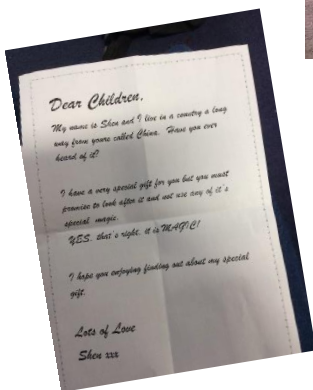 Dear Children,
My name is Shen and I live in a country a long
way from yours called China. Have you ever
heard of it?
I have a very special gift for you but you must
promise to look after it and not use any of it's
special magic.
YES, that's right, it is MAGIC!
I hope you enjoying finding out about my special
gift.
Lots of Love
Shen xxx